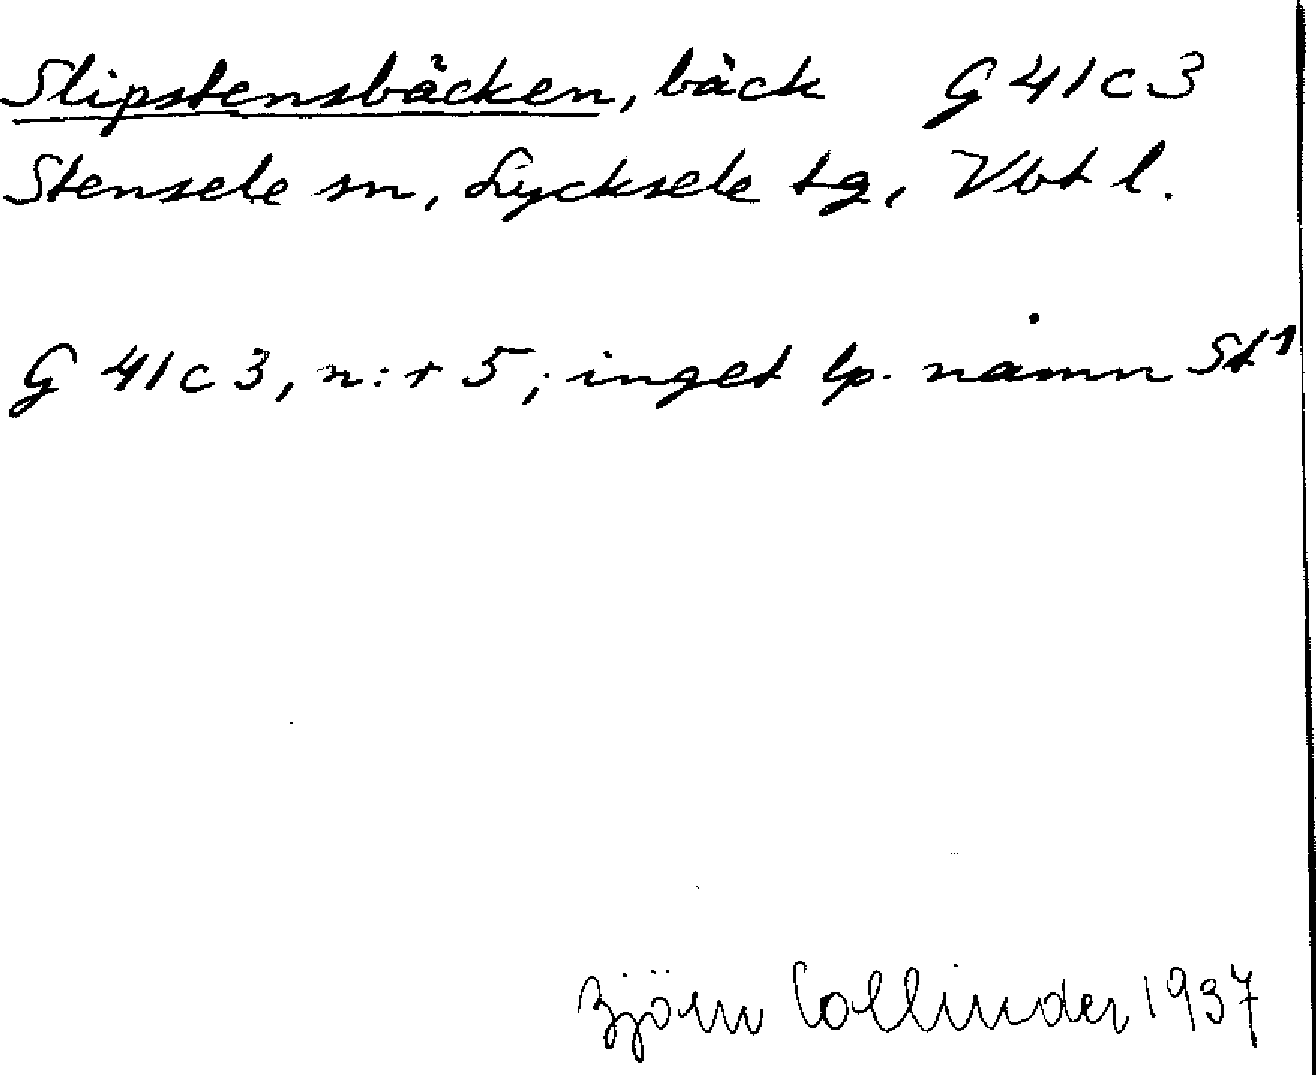 Slipstensbäcken, bäck G 41 c 3
Stensele sn, Lycksele tg, Vbt l.
G 41 c 3, n:r 5; inget lp. namn St¹
Björn Collinder 1937